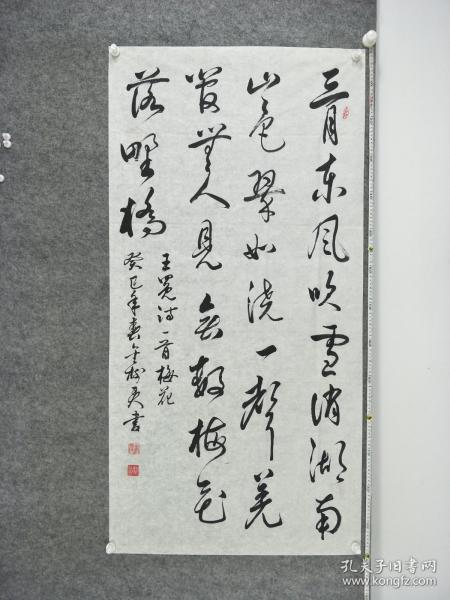 三月东风吹雪消湖南
山色翠如浇一聲羌
管無人見无數梅花
落野橋
王冕诗一首梅花
癸巳年春書
孔夫子旧书网
www.kongfz.com